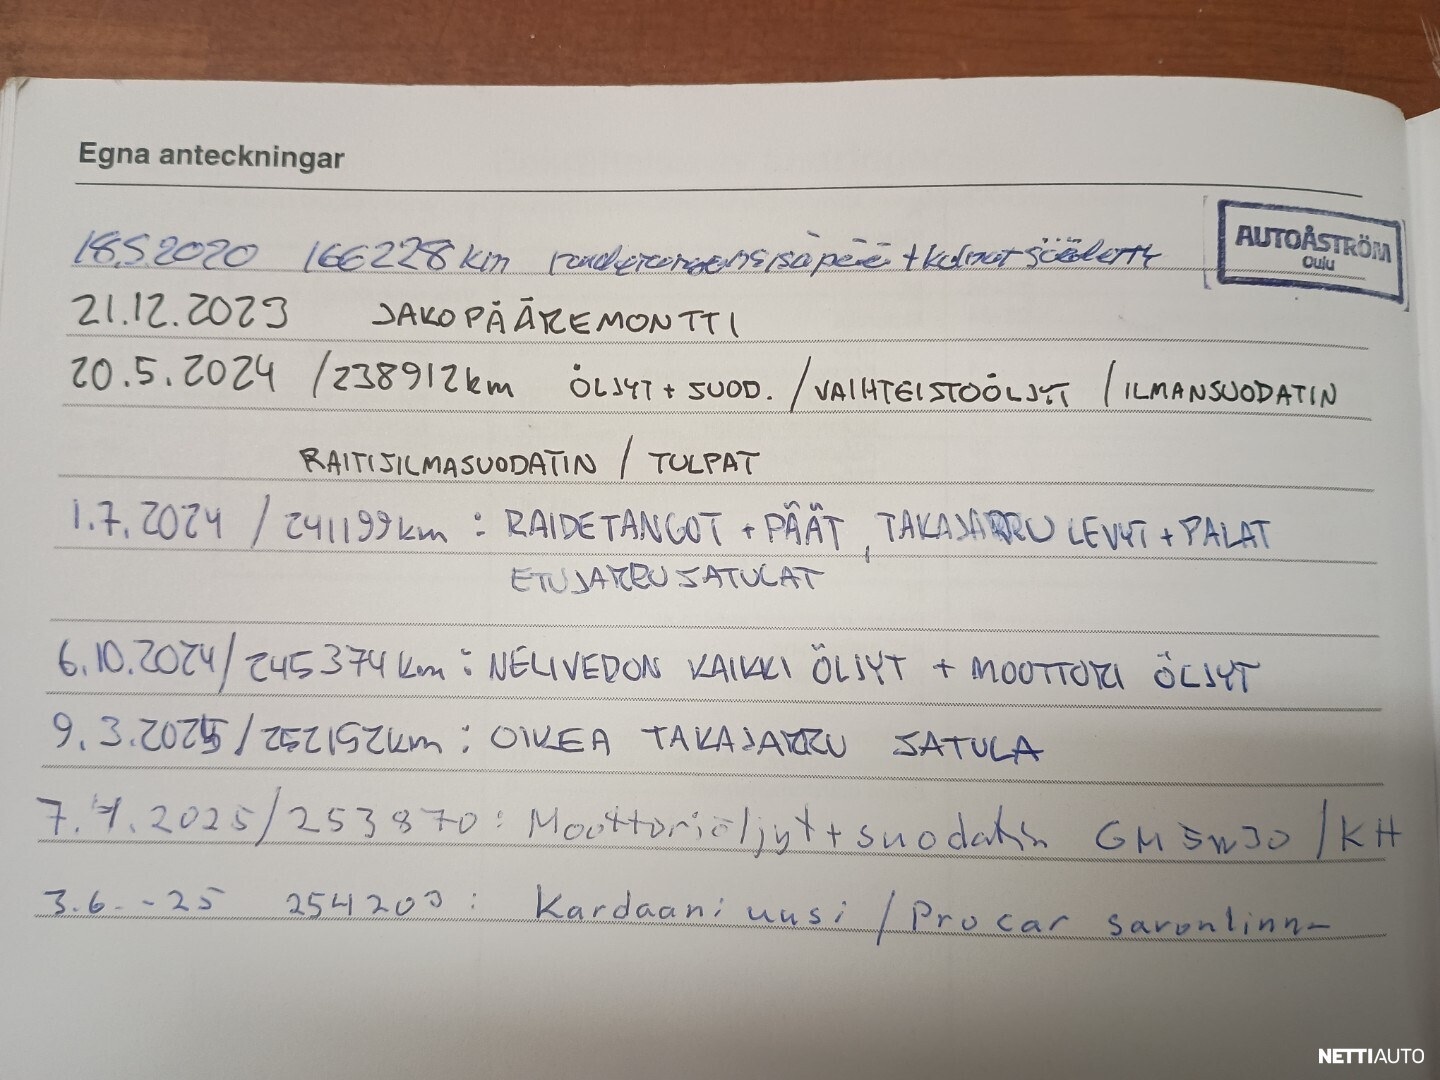 Egna anteckningar
AUTOÅSTRÖM
Oulu
18.5.2020 166228 km raidetangon sisäpää + kulmat säädetty
21.12.2023 JAKOPÄÄREMONTTI
20.5.2024 /238912km ÖLJYT + SUOD. /VAIHTEISTOÖLJYT /ILMANSUODATIN
RAITISILMASUODATIN / TULPAT
1.7.2024 /241199km : RAIDETANGOT + PÄÄT, TAKAJARRU LEVYT + PALAT
ETUJARRU SATULAT
6.10.2024/245374km : NELIVEDON KAIKKI ÖLJYT + MOOTTORI ÖLJYT
9.3.2025/252152km : OIKEA TAKAJARRU SATULA
7.4.2025/253870: Moottoriöljyt + suodatin GM 5w30 /KH
3.6.-25 254203: Kardaani uusi / Pro car savonlinna
NETTIAUTO